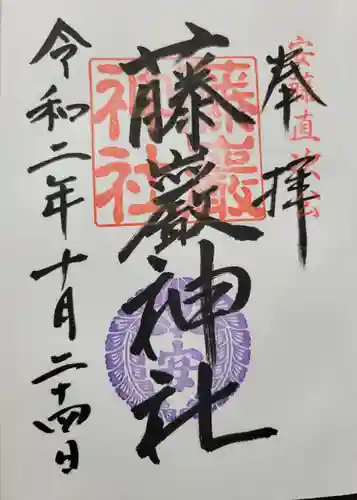 奉拝
安藤直次公
藤巖神社
藤巖神社
安
令和二年十月二十四日